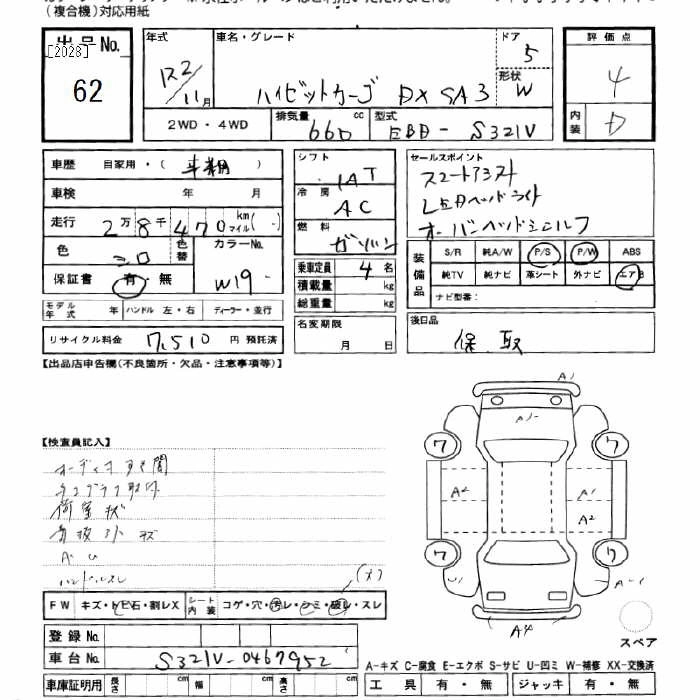 (複合機)対応用紙
出品No.
[2028]
62
年式
車名・グレード
ドア
評価点
R2/11月
ハイゼットカーゴ DX SA3
5
形状
W
4
2WD・4WD
排気量
660
cc
型式
EBD-S321V
内装
D
車歴 自家用・( )
車検 年 月
走行 2万8千470 km マイル( )
色
色替
カラーNo.
シロ
W19
保証書 有・無
モデル年式 年 ハンドル 左・右 ディーラー・並行
リサイクル料金 7,510 円 預託済
シフト
IAT
冷房
AC
燃料
ガソリン
乗車定員 4 名
積載量 kg
総重量 kg
名変期限
月 日
セールスポイント
スマートアシスト
LEDヘッドライト
オーバーヘッドシェルフ
装備品
S/R 純A/W P/S P/W ABS
純TV 純ナビ 革シート 外ナビ エアB
ナビ型番:
後日品
保、取
【出品店申告欄(不良箇所・欠品・注意事項等)】
【検査員記入】
荷室状
AU
ハンドルスレ
(メ)
FW キズ・トビ石・割レX
シート内装 コゲ・穴・汚レ・シミ・破レ・スレ
A1
A1-
ワ ワ
A2 A1
A2
ワ ワ
A4
スペア
登録No.
車台No. S321V-0467952
A-キズ C-腐食 E-エクボ S-サビ U-凹ミ W-補修 XX-交換済
車庫証明用 長さ cm 幅 cm 高さ cm
工具 有・無 ジャッキ 有・無